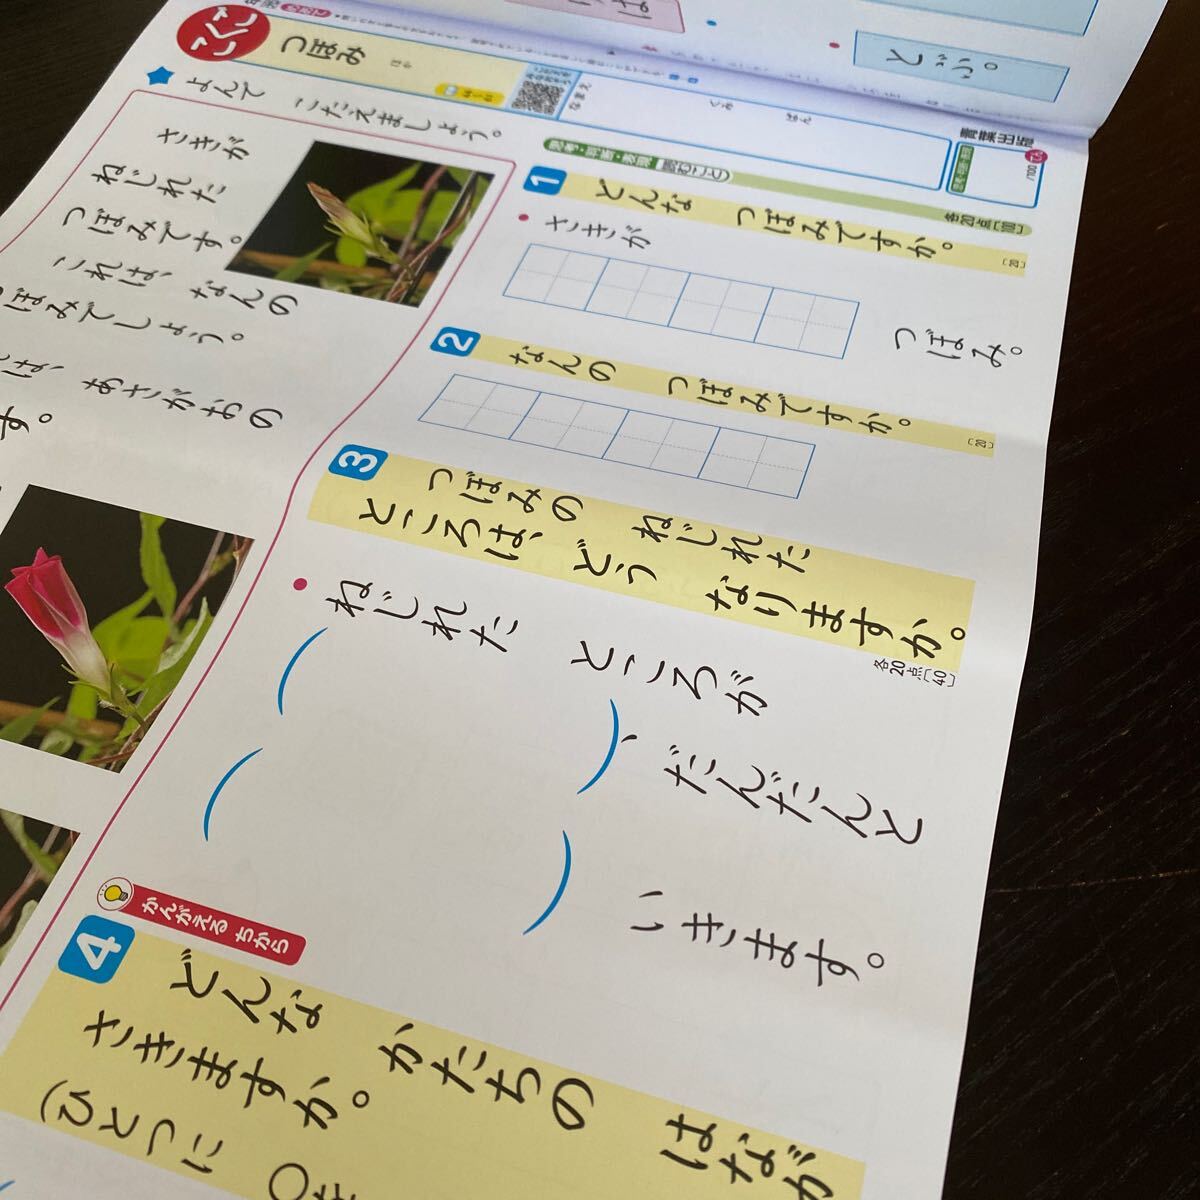 こくご
つぼみ
ほか
なまえ
くみ
ばん
青葉出版
/100
よんで　こたえましょう。
さきが
ねじれた
つぼみです。
これは、なんの
ぼみでしょう。
は、あさがおの
す。
思考・判断・表現
読むこと
各20点〔100〕
1
どんな　つぼみですか。
〔20〕
さきが
つぼみ。
2
なんの　つぼみですか。
〔20〕
3
つぼみの　ねじれた
ところは、どう　なりますか。
各20点〔40〕
ねじれた　ところが
（　）、だんだんと
（　）いきます。
かんがえるちから
4
どんな　かたちの　はなが
さきますか。
（ひとつに　○
ど
ぶ。
は